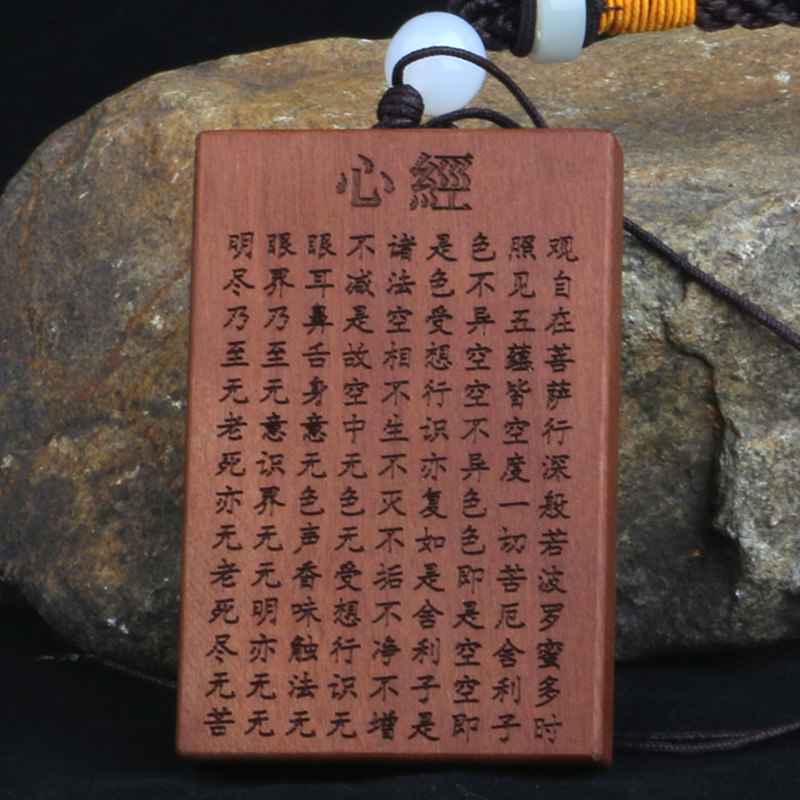 心經
观自在菩萨行深般若波罗蜜多时
照见五蕴皆空度一切苦厄舍利子
色不异空空不异色色即是空空即
是色受想行识亦复如是舍利子是
诸法空相不生不灭不垢不净不增
不减是故空中无色无受想行识无
眼耳鼻舌身意无色声香味触法无
眼界乃至无意识界无无明亦无无
明尽乃至无老死亦无老死尽无苦